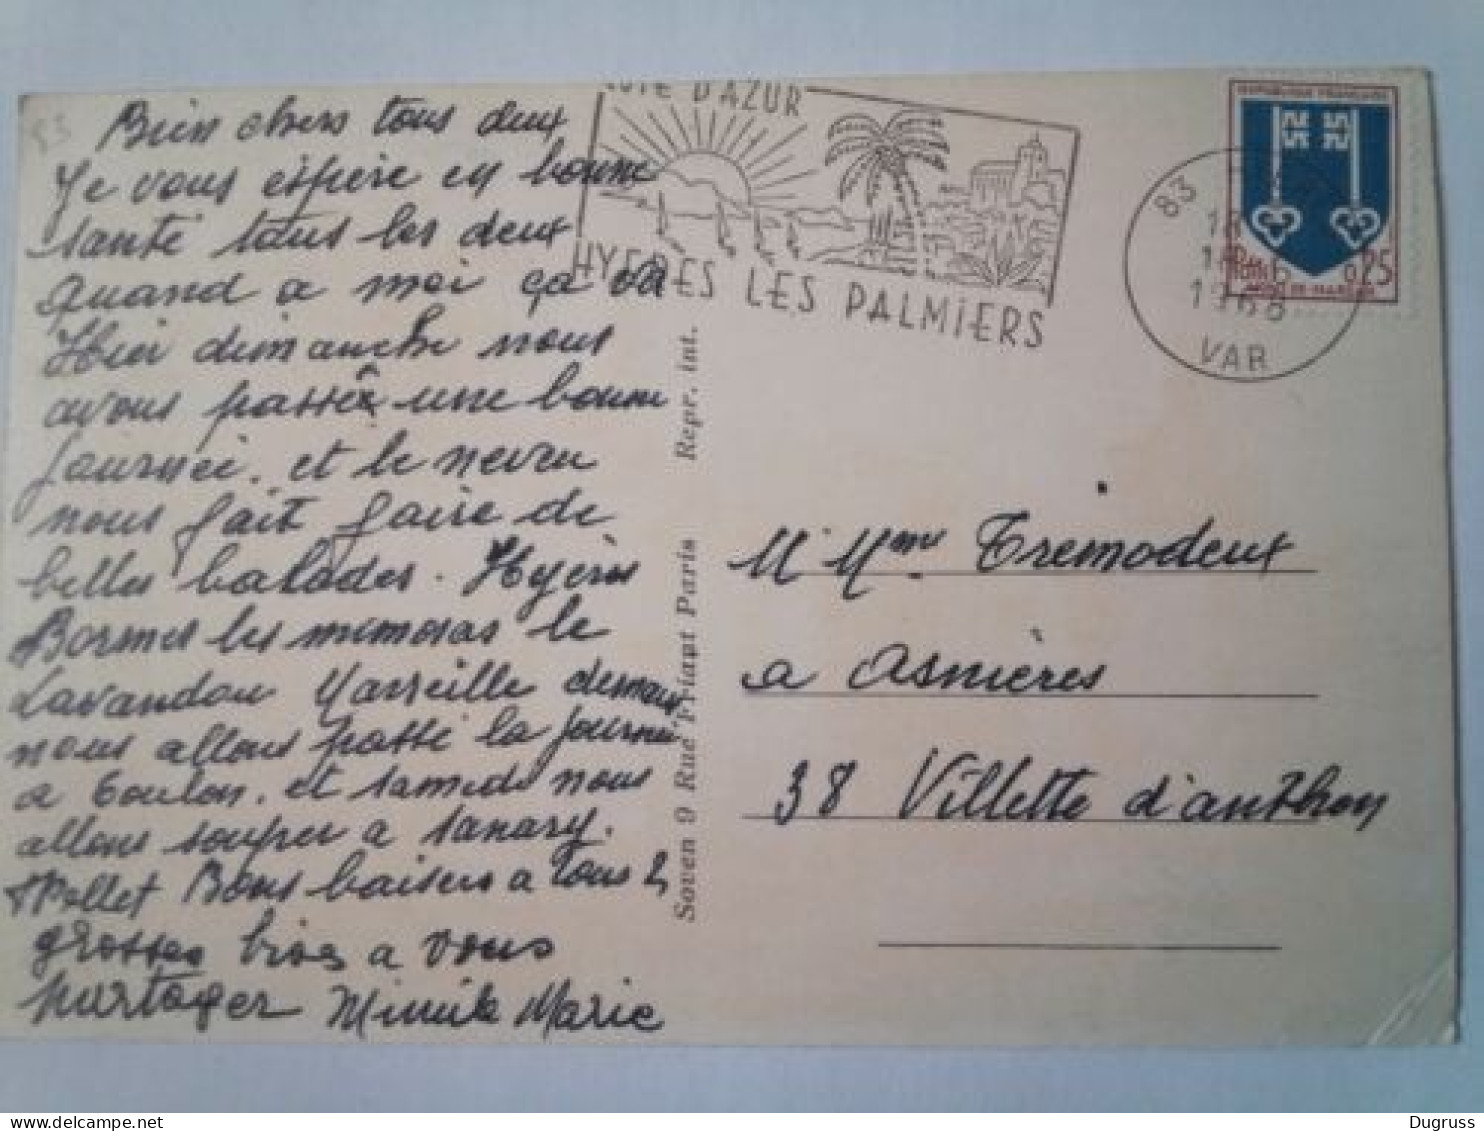 Bien chers tous deux
Je vous espère en bonne
santé tous les deux
quand a moi ça va
Hier dimanche nous
avons passée une bonne
journée. et le neveu
nous fait faire de
belles balades. Hyères
Bormes les mimosas le
Lavandou Marseille demain
nous allons passé la journée
a Toulon. et samedi nous
allons souper a Sanary.
Bons baisers a tous 2
grosses bises a vous
partager Mimile Marie
COTE D'AZUR
HYERES LES PALMIERS
REPUBLIQUE FRANCAISE
0,25
MONT-DE-MARSAN
83
VAR
Saven 9 Rue Friant Paris Repr. int.
M Mme Tremodeux
a Asnières
38 Villette d'anthon
83
Dugruss